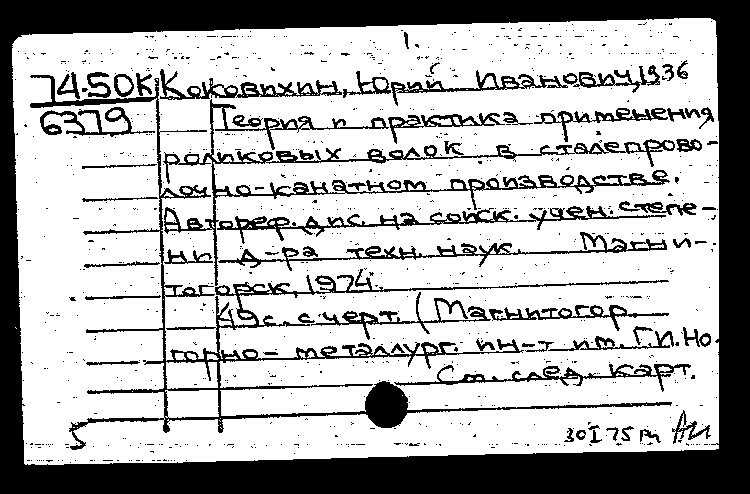 1.
74-50К Коковихин, Юрий Иванович, 1936
6379 Теория и практика применения
роликовых волок в сталепрово-
лочно-канатном производстве.
Автореф. дис. на соиск. учен. степе-
ни д-ра техн. наук. Магни-
тогорск, 1974.
49 с. с черт. (Магнитогор.
горно-металлург. ин-т им. Г.И. Но.
См. след. карт.
5 30 I 75